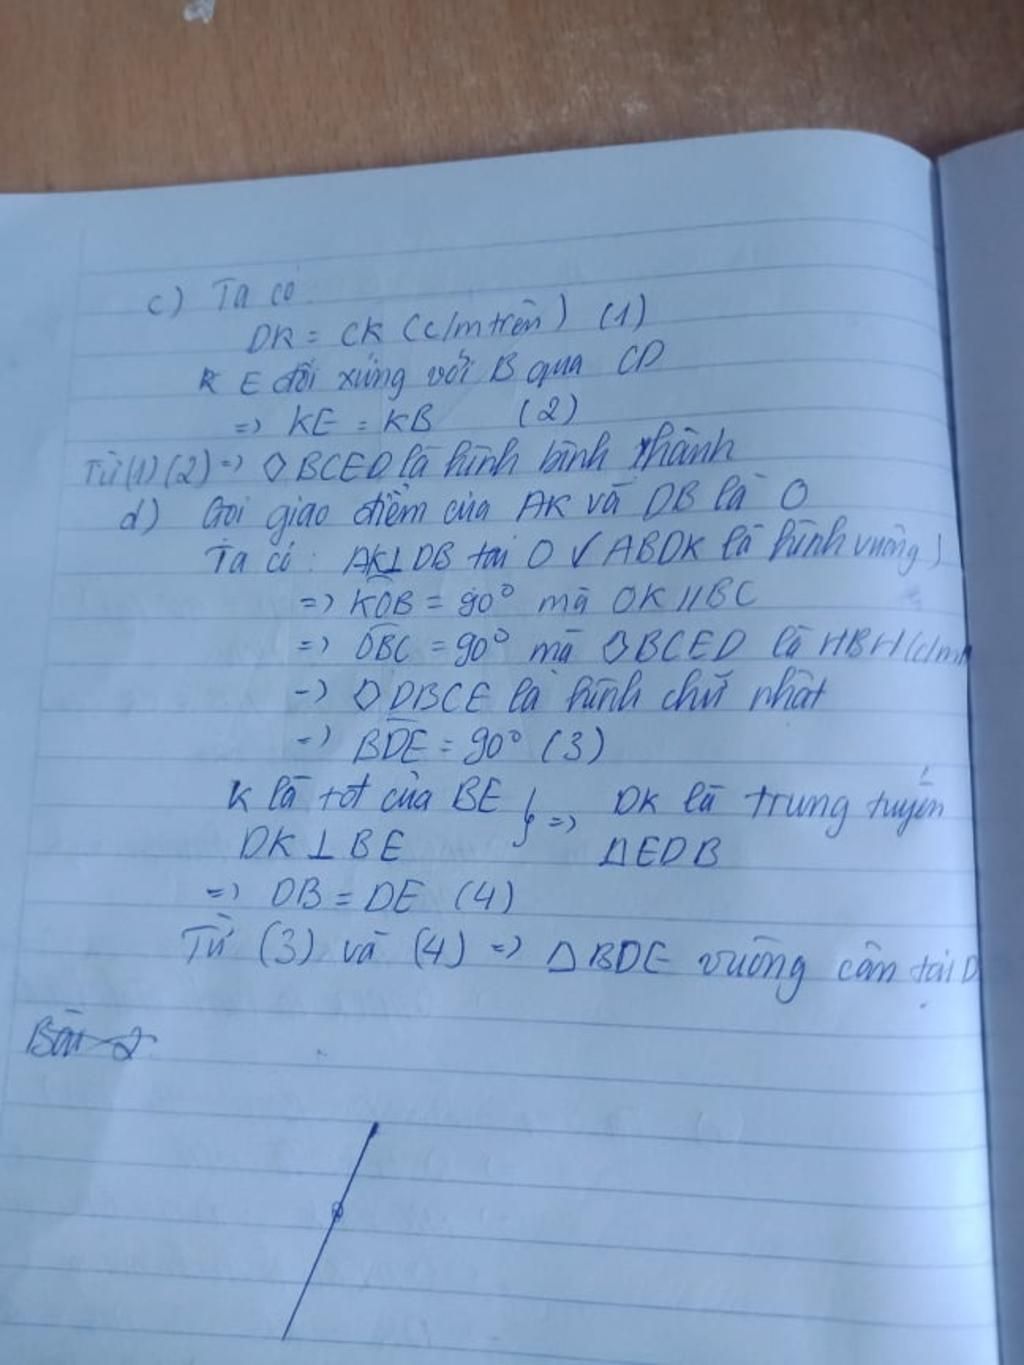 c) Ta có
DK = CK (c/m trên) (1)
E đối xứng với B qua CD
=> KE = KB (2)
Từ (1) (2) => ◊ BCED là hình bình hành
d) Gọi giao điểm của AK và DB là O
Ta có : AK⊥DB tại O ( ABDK là hình vuông )
=> KOB = 90° mà OK // BC
=> DBC = 90° mà ◊ BCED là HBH (c/m
-> ◊ DBCE là hình chữ nhật
=> BDE = 90° (3)
K là tđ của BE } => DK là trung tuyến
DK ⊥ BE ΔEDB
=> DB = DE (4)
Từ (3) và (4) => Δ BDE vuông cân tại D
Bài 2